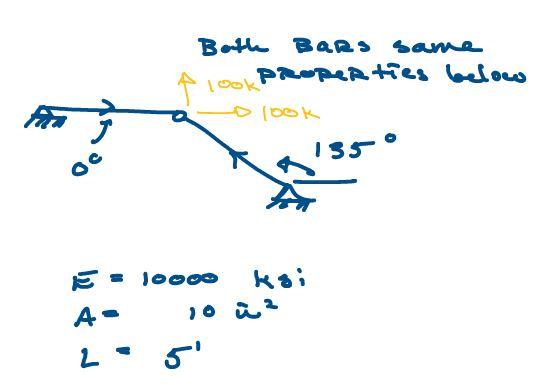 Both BARS same
properties below
100k
100k
0°
135°
E = 10000 ksi
A = 10 in²
L = 5'